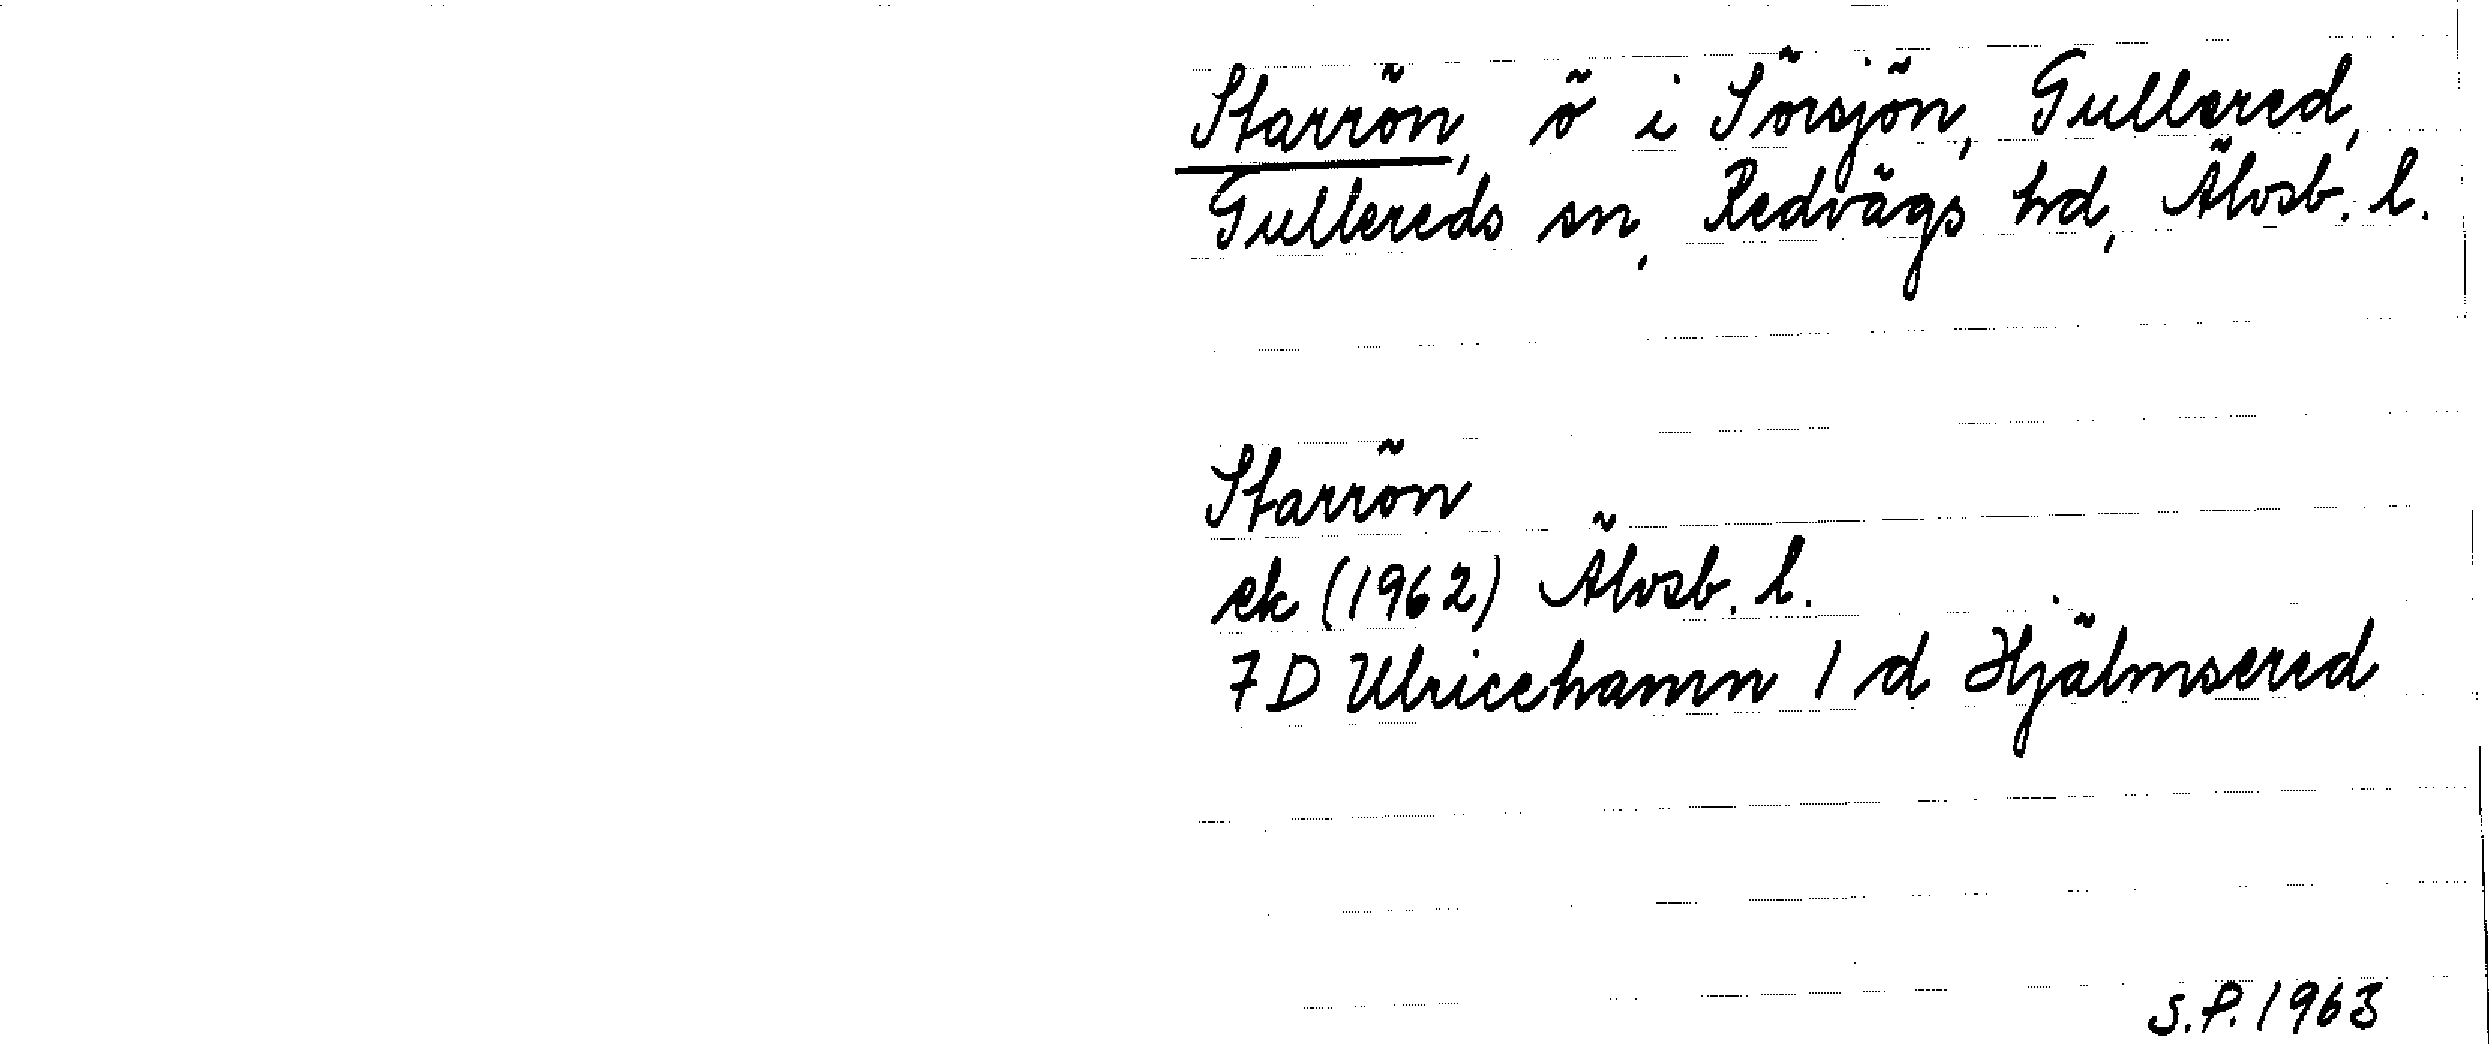 Starrön, ö i Sörsjön, Gullered,
Gullereds sn, Redvägs hd, Älvsb. l.
Starrön
ek (1962) Älvsb. l.
7 D Ulricehamn 1 d Hjälmsered
S.P. 1963